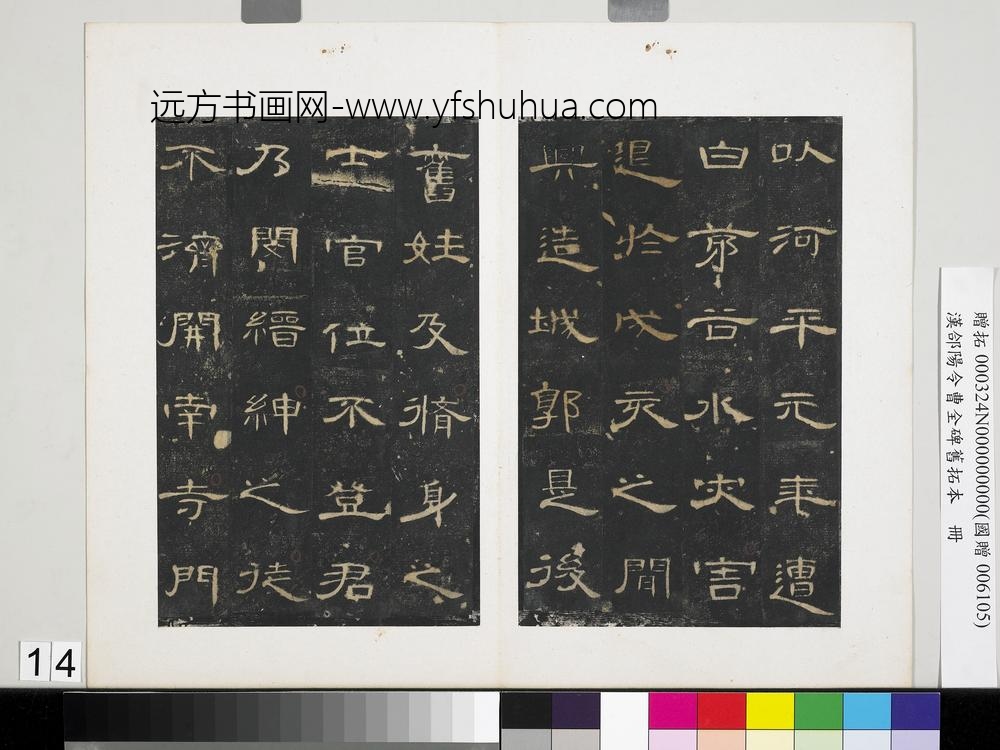 远方书画网-www.yfshuhua.com
以河平元年遭
白茅谷水灾害
退於戌亥之間
興造城郭是後
舊姓及脩身之
士官位不登君
乃閔縉紳之徒
不濟開南寺門
贈拓 000324N000000000(國贈 006105)
漢郃陽令曹全碑舊拓本 冊
14